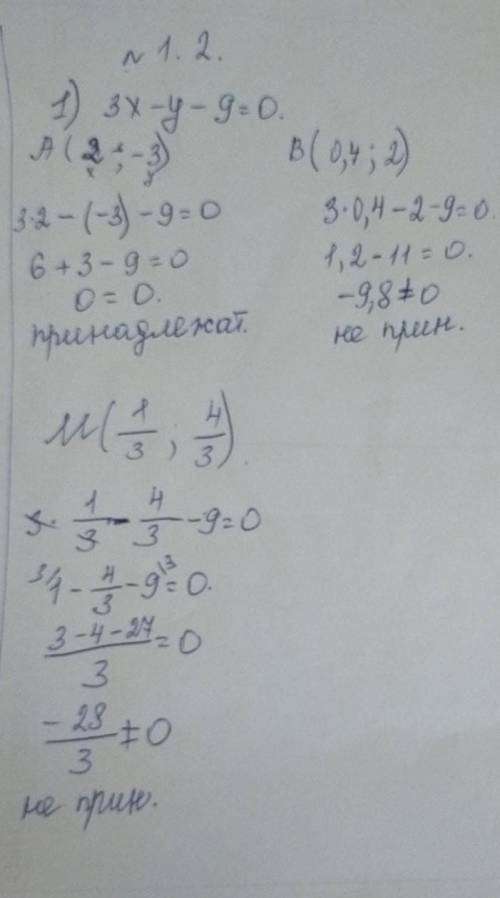 № 1.2.
1) 3x - y - 9 = 0.
A(2; -3)
3·2 - (-3) - 9 = 0
6 + 3 - 9 = 0
0 = 0.
принадлежат.
B(0,4; 2)
3·0,4 - 2 - 9 = 0.
1,2 - 11 = 0.
-9,8 ≠ 0
не прин.
M(1/3; 4/3).
3· 1/3 - 4/3 - 9 = 0
3/1 - 4/3 - 9\3 = 0.
(3-4-27)/3 = 0
-28/3 ≠ 0
не прин.